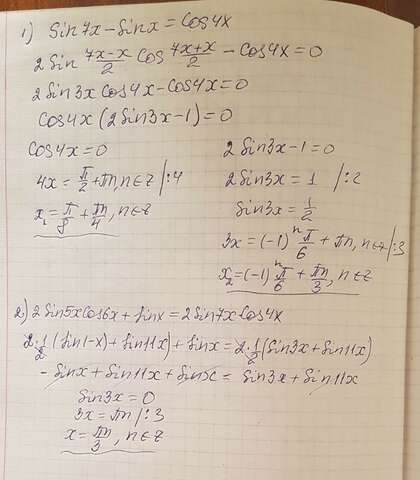 1) Sin7x-Sinx=Cos4x
2Sin (7x-x)/2 Cos (7x+x)/2 - Cos4x=0
2Sin3xCos4x-Cos4x=0
Cos4x(2Sin3x-1)=0
Cos4x=0
4x=π/2+πn,n∈z/:4
x₁=π/8+πn/4,n∈z
2Sin3x-1=0
2Sin3x=1 /:2
Sin3x=1/2
3x=(-1)ⁿπ/6+πn,n∈z/:3
x₂=(-1)ⁿπ/6+πn/3,n∈z
2) 2Sin5xCos6x+Sinx=2Sin7xCos4x
2·1/2(Sin(-x)+Sin11x)+Sinx=2·1/2(Sin3x+Sin11x)
-Sinx+Sin11x+Sinx=Sin3x+Sin11x
Sin3x=0
3x=πn/:3
x=πn/3,n∈z